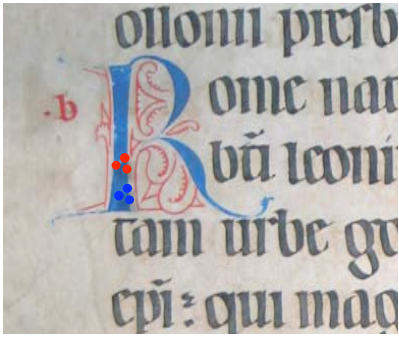 ollonii presb
·b
Rome nat
bti leoni
tam urbe go
epi: qui mag